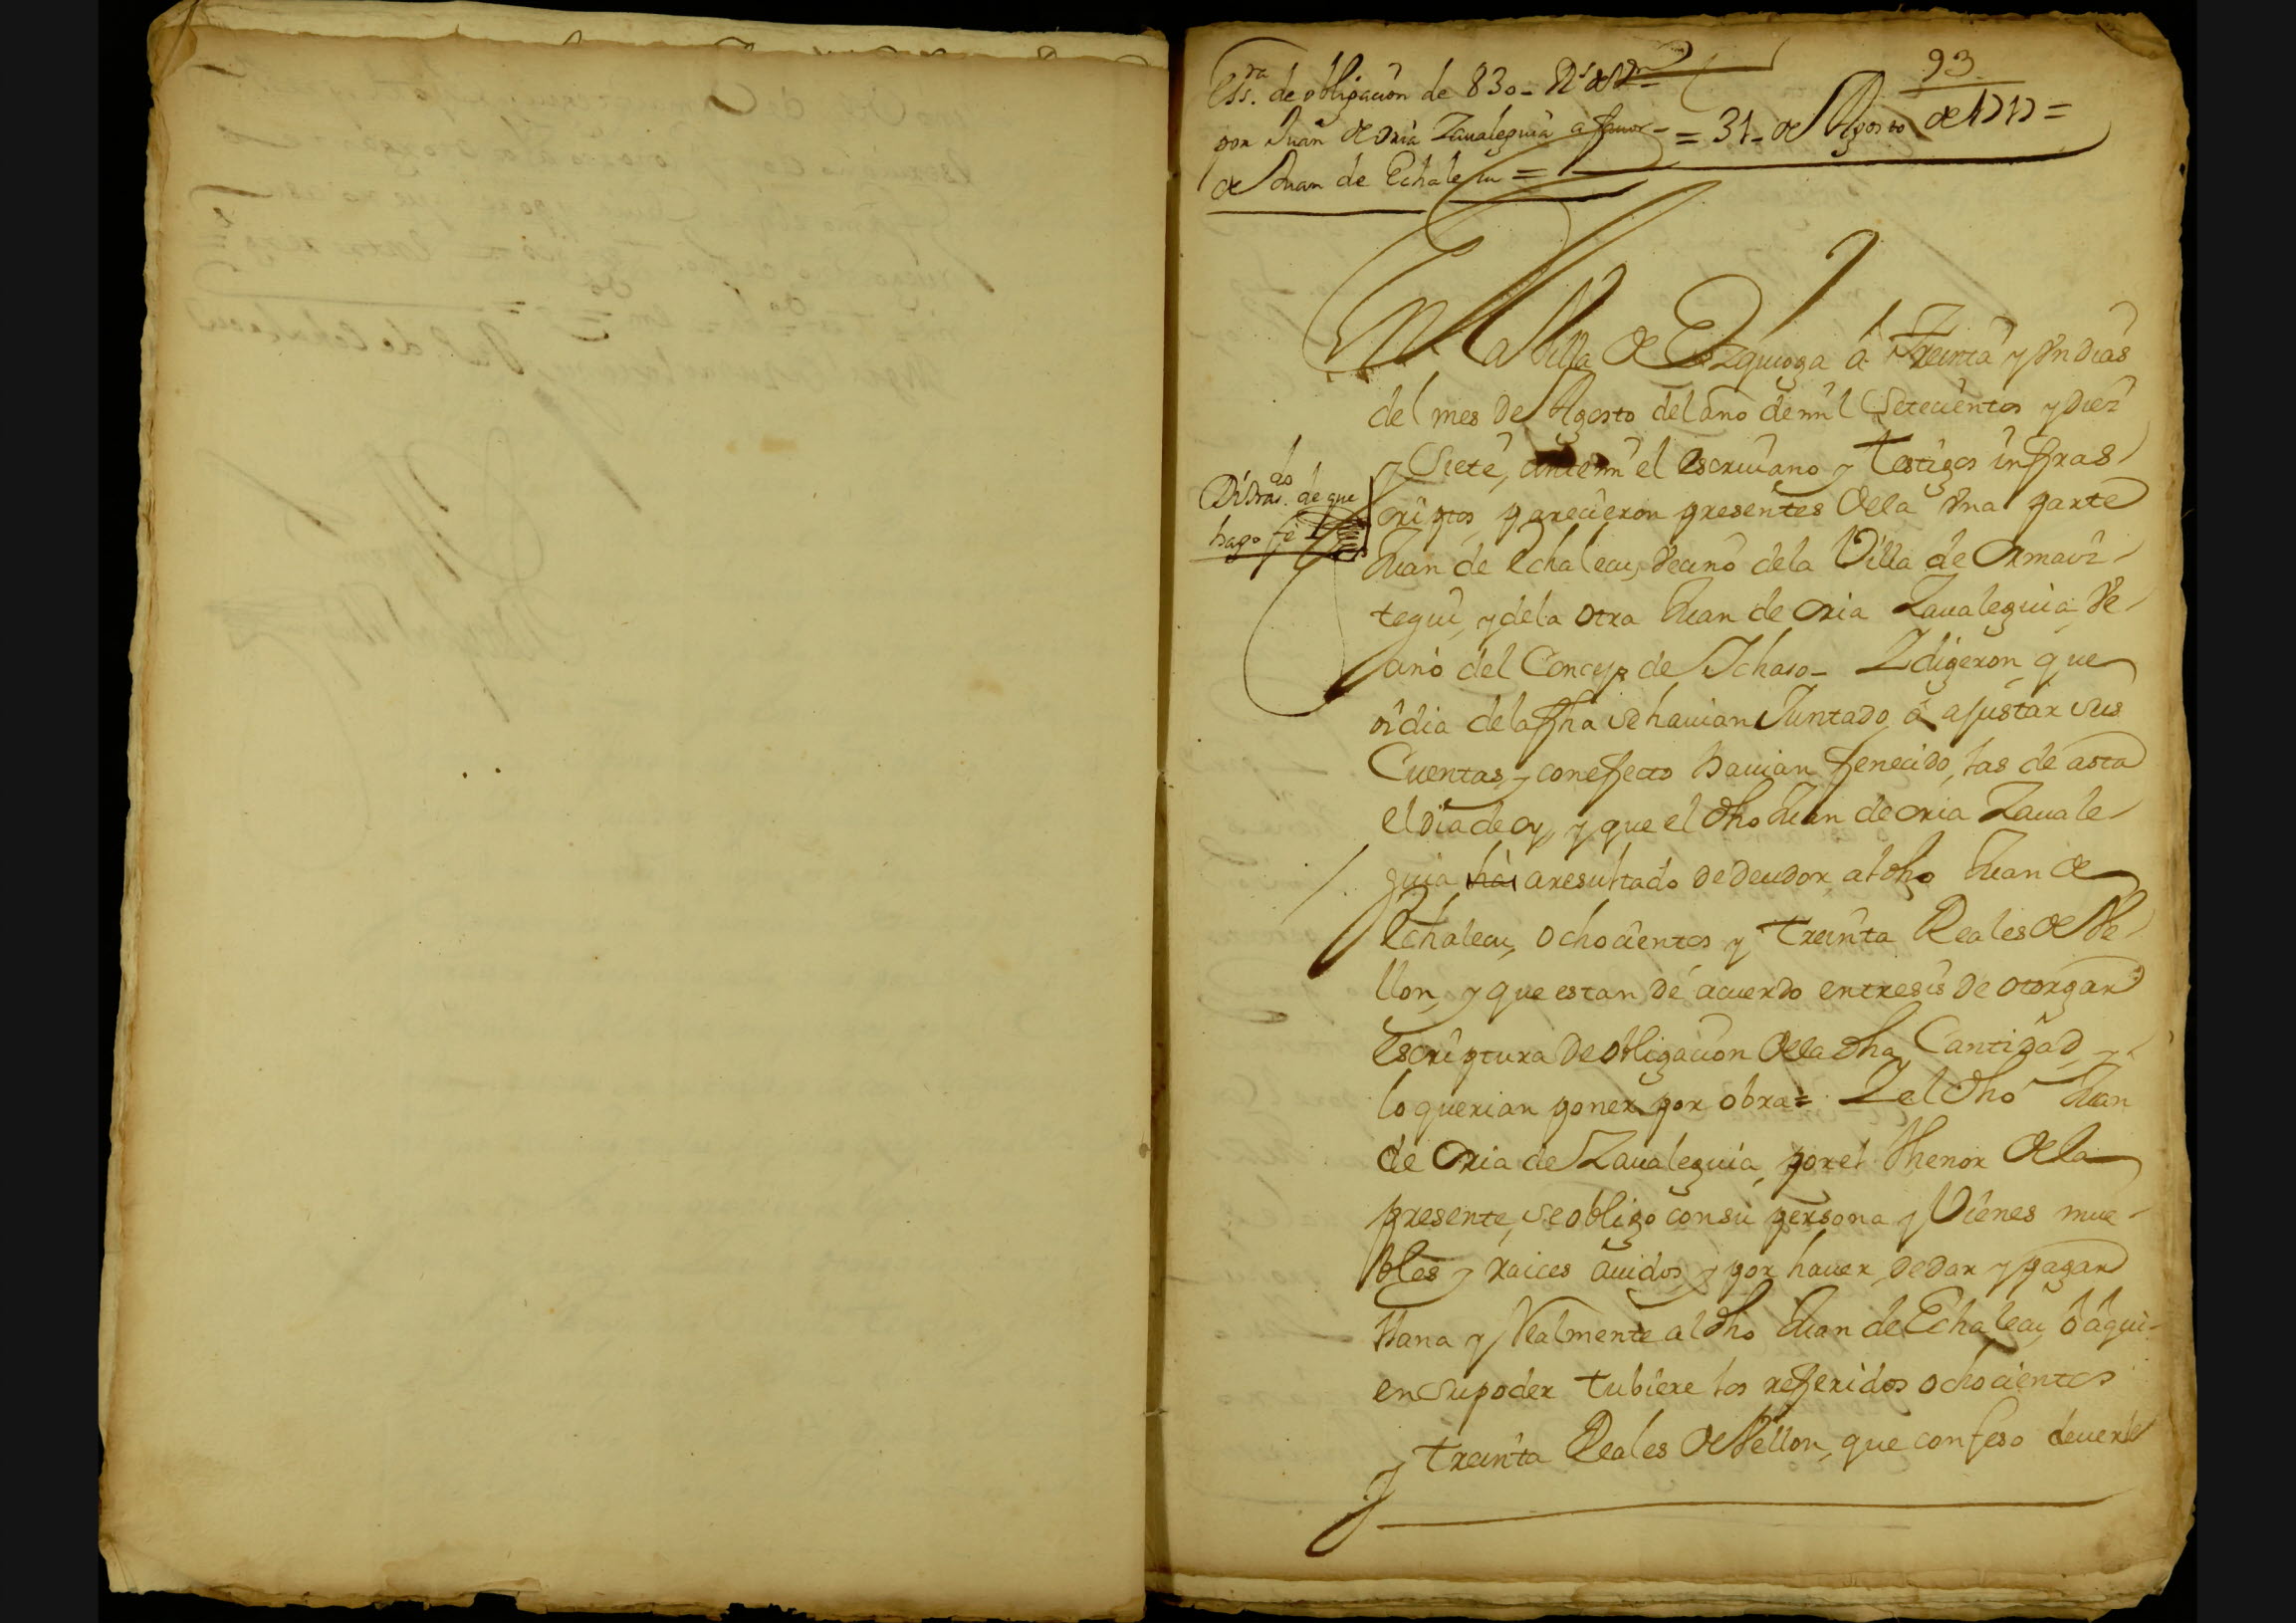 93
Essra. de obligaçion de 830 - Rs de Vn
por Juan de Oria Zaualeguia a fauor -
de Juan de Echalecu =
= 31 - de Agosto de 1717 =
En la Villa de Ezquioga â Treinta y Vn dias
del mes de Agosto del año de mil Setecientos y Diez
y Siete, antemi el escriuano y testigos infras
criptos parecieron presentes de la Vna parte
Juan de Echalecu, Vecino dela Villa de Ormaiz-
tegui, y dela otra Juan de Oria Zaualeguia, Ve-
cino del Concejo de Ichaso - Y digeron que
oi dia dela fha se hauian Juntado â ajustar sus
Cuentas y con efecto hauian fenecido, las de asta
el dia de oy, y que el dho Juan de oria Zauale-
guia ha aresultado de deudor, al dho Juan de
Echalecu, ochocientos y treinta Reales de Ve-
llon, y que estan de acuerdo entresis de otorgar
escriptura de obligacion de la dha Cantidad y
lo querian poner por obra = Y el dho Juan
de Oria de Zaualeguia, por el thenor de la
presente, se obligo con su persona y Vienes mue-
bles y raices auidos y por hauer de dar y pagar
llana y Realmente al dho Juan de Echalecu, ô â qui-
en su poder tubiere los referidos ochocientos
y treinta Reales de Vellon, que confeso deuerle
do
de que
hago fe